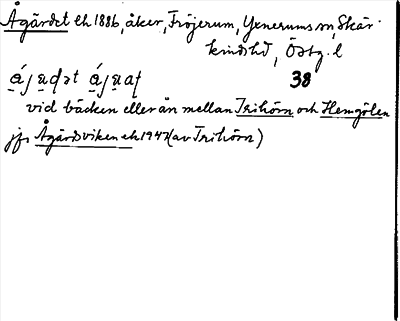 Ågärdet ek 1886, åker, Fröjerum, Yxnerums sn, Skär-
kinds hd, Östg. l
38
vid bäcken eller ån mellan Trihörn och Hemgölen
jfr Ågärdsviken ek 1947 (av Trihörn)